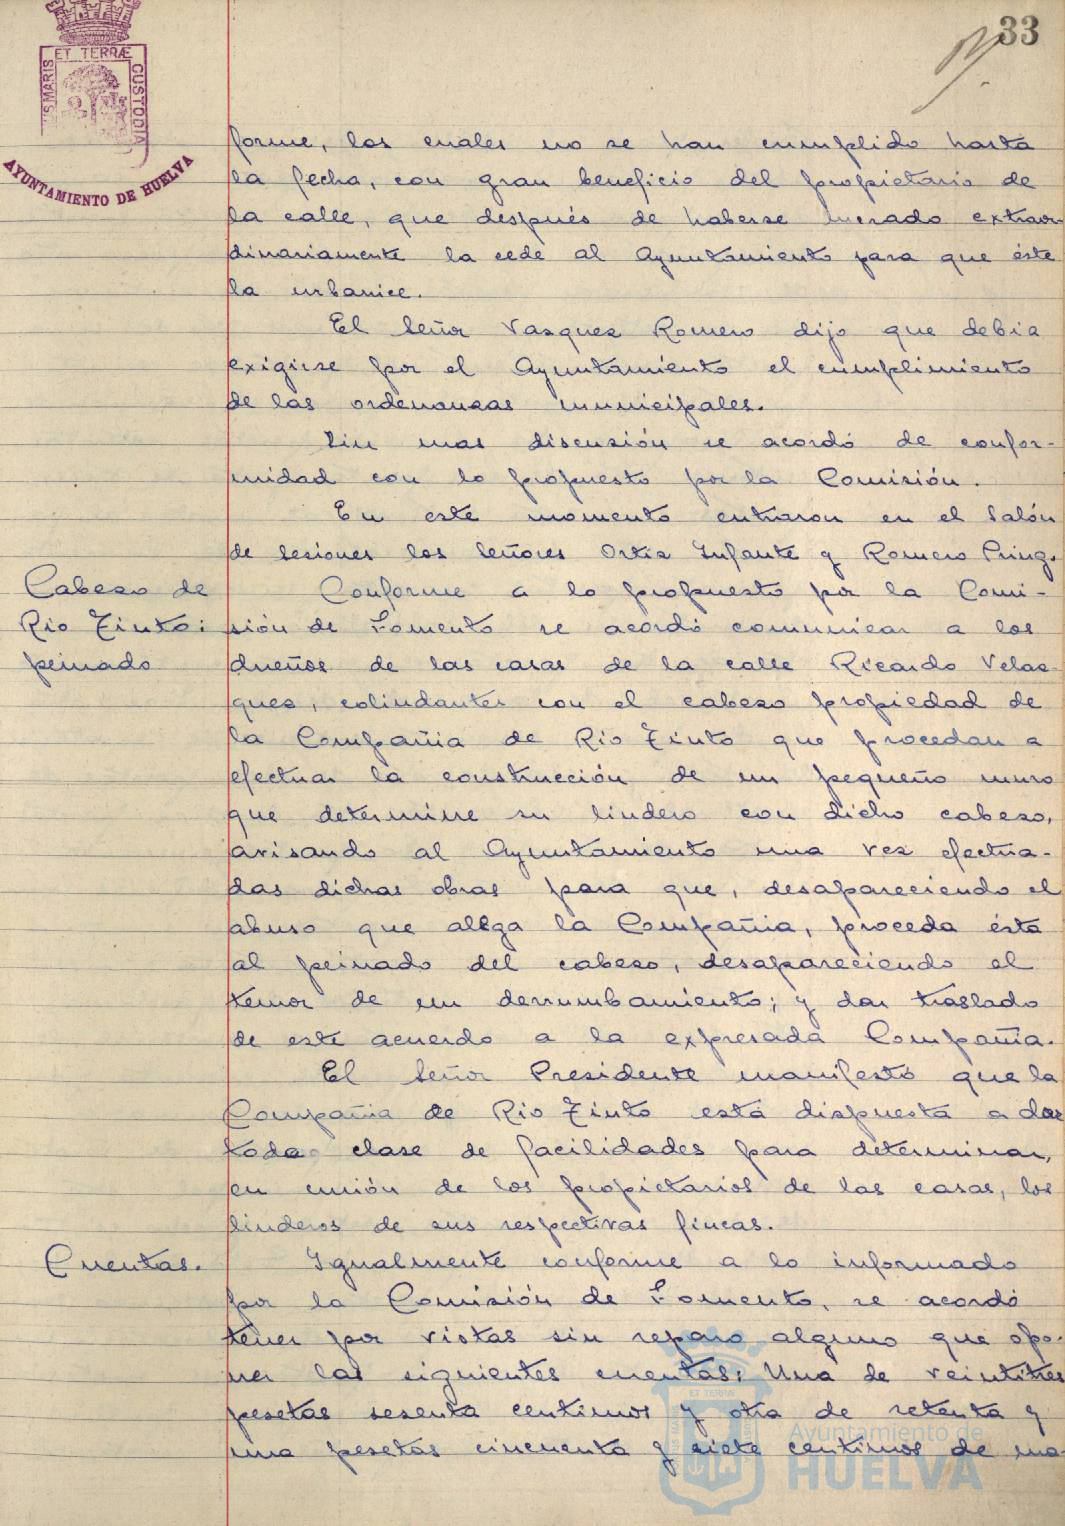 33
S MARIS ET TERRÆ CUSTODIA
AYUNTAMIENTO DE HUELVA
forme, las cuales no se han cumplido hasta
la fecha, con gran beneficio del propietario de
la calle, que después de haberse lucrado extraor-
dinariamente la cede al Ayuntamiento para que éste
la urbanice.
El Señor Vazquez Romero dijo que debia
exigirse por el Ayuntamiento el cumplimiento
de las ordenanzas municipales.
Sin mas discusión se acordó de confor-
midad con lo propuesto por la Comisión.
En este momento entraron en el Salón
de sesiones los Señores Ortiz Infante y Romero Pring.
Cabezo de
Rio Tinto:
peinado
Conforme a lo propuesto por la Comi-
sión de Fomento se acordó comunicar a los
dueños de las casas de la calle Ricardo Velaz-
quez, colindantes con el cabezo propiedad de
la Compañia de Rio Tinto que procedan a
efectuar la construcción de un pequeño muro
que determine su lindero con dicho cabezo,
avisando al Ayuntamiento una vez efectua-
das dichas obras para que, desapareciendo el
abuso que alega la Compañia, proceda ésta
al peinado del cabezo, desapareciendo el
temor de un derrumbamiento; y dar traslado
de este acuerdo a la expresada Compañia.
El Señor Presidente manifestó que la
Compañia de Rio Tinto está dispuesta a dar
toda clase de facilidades para determinar,
en unión de los propietarios de las casas, los
linderos de sus respectivas fincas.
Cuentas.
Igualmente conforme a lo informado
por la Comisión de Fomento, se acordó
tener por vistas sin reparo alguno que opo-
ner las siguientes cuentas: Una de veintitres
pesetas sesenta centimos y otra de setenta y
una pesetas cincuenta y siete centimos de ma-
Ayuntamiento de
HUELVA